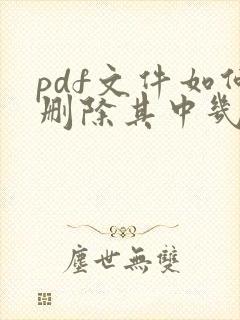 pdf文件如何
删除其中几
塵世無雙